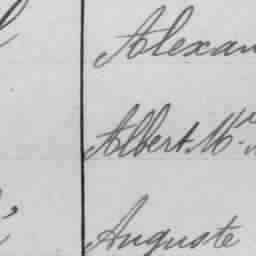 Alexan
Albert. M
Auguste